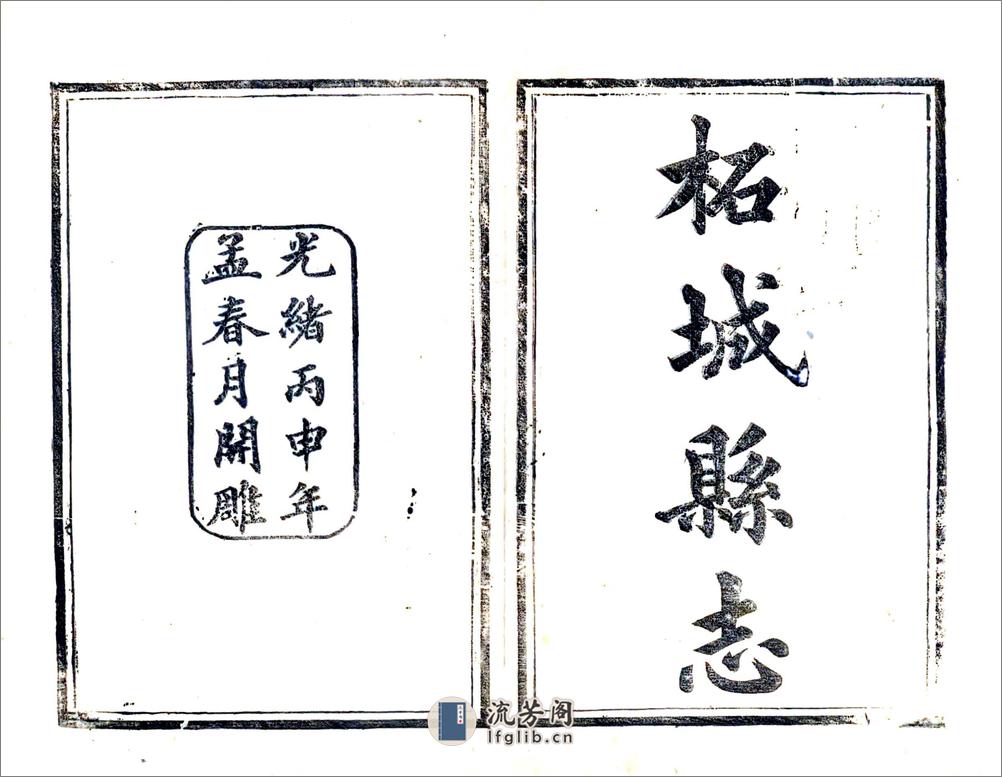 柘城縣志
光緒丙申年
孟春月開雕
流芳阁
lfglib.cn